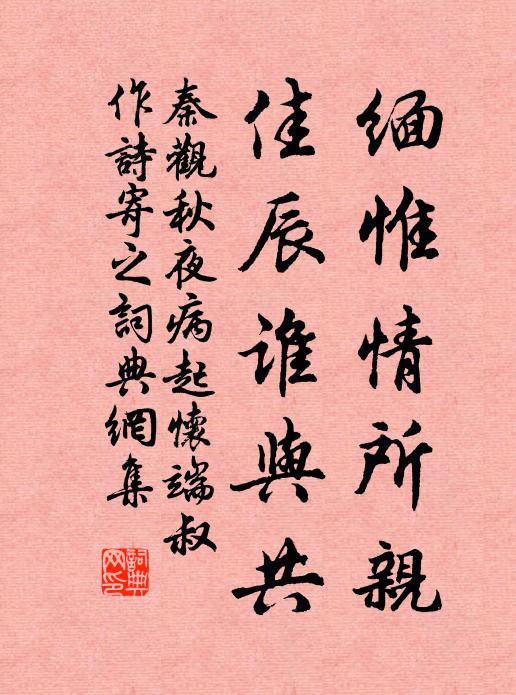 缅惟情所親
佳辰谁與共
秦觀秋夜病起懷端叔
作詩寄之詞典網集
詞典
网印